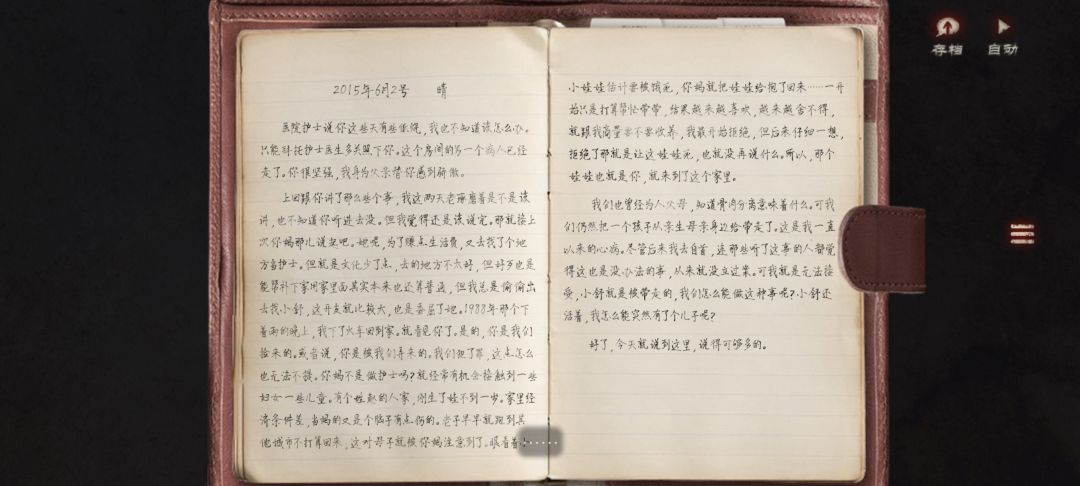 2015年6月2号 晴
医院护士说你这些天有些低烧，我也不知道该怎么办。
只能拜托护士医生多关照下你。这个房间的另一个病人已经
走了。你很坚强，我身为父亲替你感到骄傲。
上回跟你讲了那么些个事，我这两天老琢磨着是不是该
讲，也不知道你听进去没。但我觉得还是该说完。那就接上
次你妈那儿说起吧。她呢，为了赚点生活费，又去找了个地
方当护士。但就是文化少了点，去的地方不太好，但好歹也是
能帮补下家用家里面其实本来也还算普通，但我总是偷偷出
去找小舒，这开支就比较大，也是委屈了她。1988年那个下
着雨的晚上，我下了火车回到家。就看见你了。是的，你是我们
捡来的。或者说，你是被我们弄来的。我们犯了罪，这点怎么
也无法不提。你妈不是做护士吗？就经常有机会接触到一些
妇女一些儿童。有个姓赵的人家，刚生了娃不到一岁。家里经
济条件差，当妈的又是个脑子有点伤的。老子早早就跑到其
他城市不打算回来，这对母子就被你妈注意到了。眼看着
小娃娃估计要被饿死，你妈就把娃娃给抱了回来……一开
始只是打算帮忙带带，结果越来越喜欢，越来越舍不得，
就跟我商量要不要收养，我最开始拒绝，但后来仔细一想，
拒绝了那就是让这娃娃死，也就没再说什么。所以，那个
娃娃也就是你，就来到了这个家里。
我们也曾经为人父母，知道骨肉分离意味着什么。可我
们仍然把一个孩子从亲生母亲身边给带走了。这是我一直
以来的心病。尽管后来我去自首，连那些听了这事的人都觉
得这也是没办法的事，从来就没立过案。可我就是无法接
受，小舒就是被带走的，我们怎么能做这种事呢？小舒还
活着，我怎么能突然有了个儿子呢？
好了，今天就说到这里，说得可够多的。
存档 自动
……